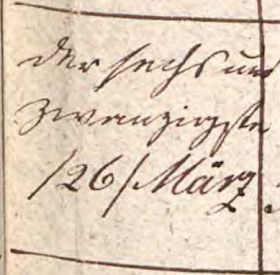 der sechs und
zwanzigste
/26/ März